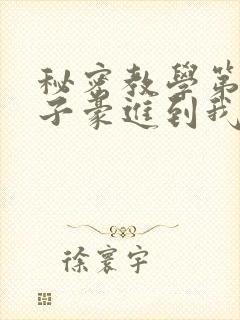 秘密教學第
子豪進到我
徐寰宇